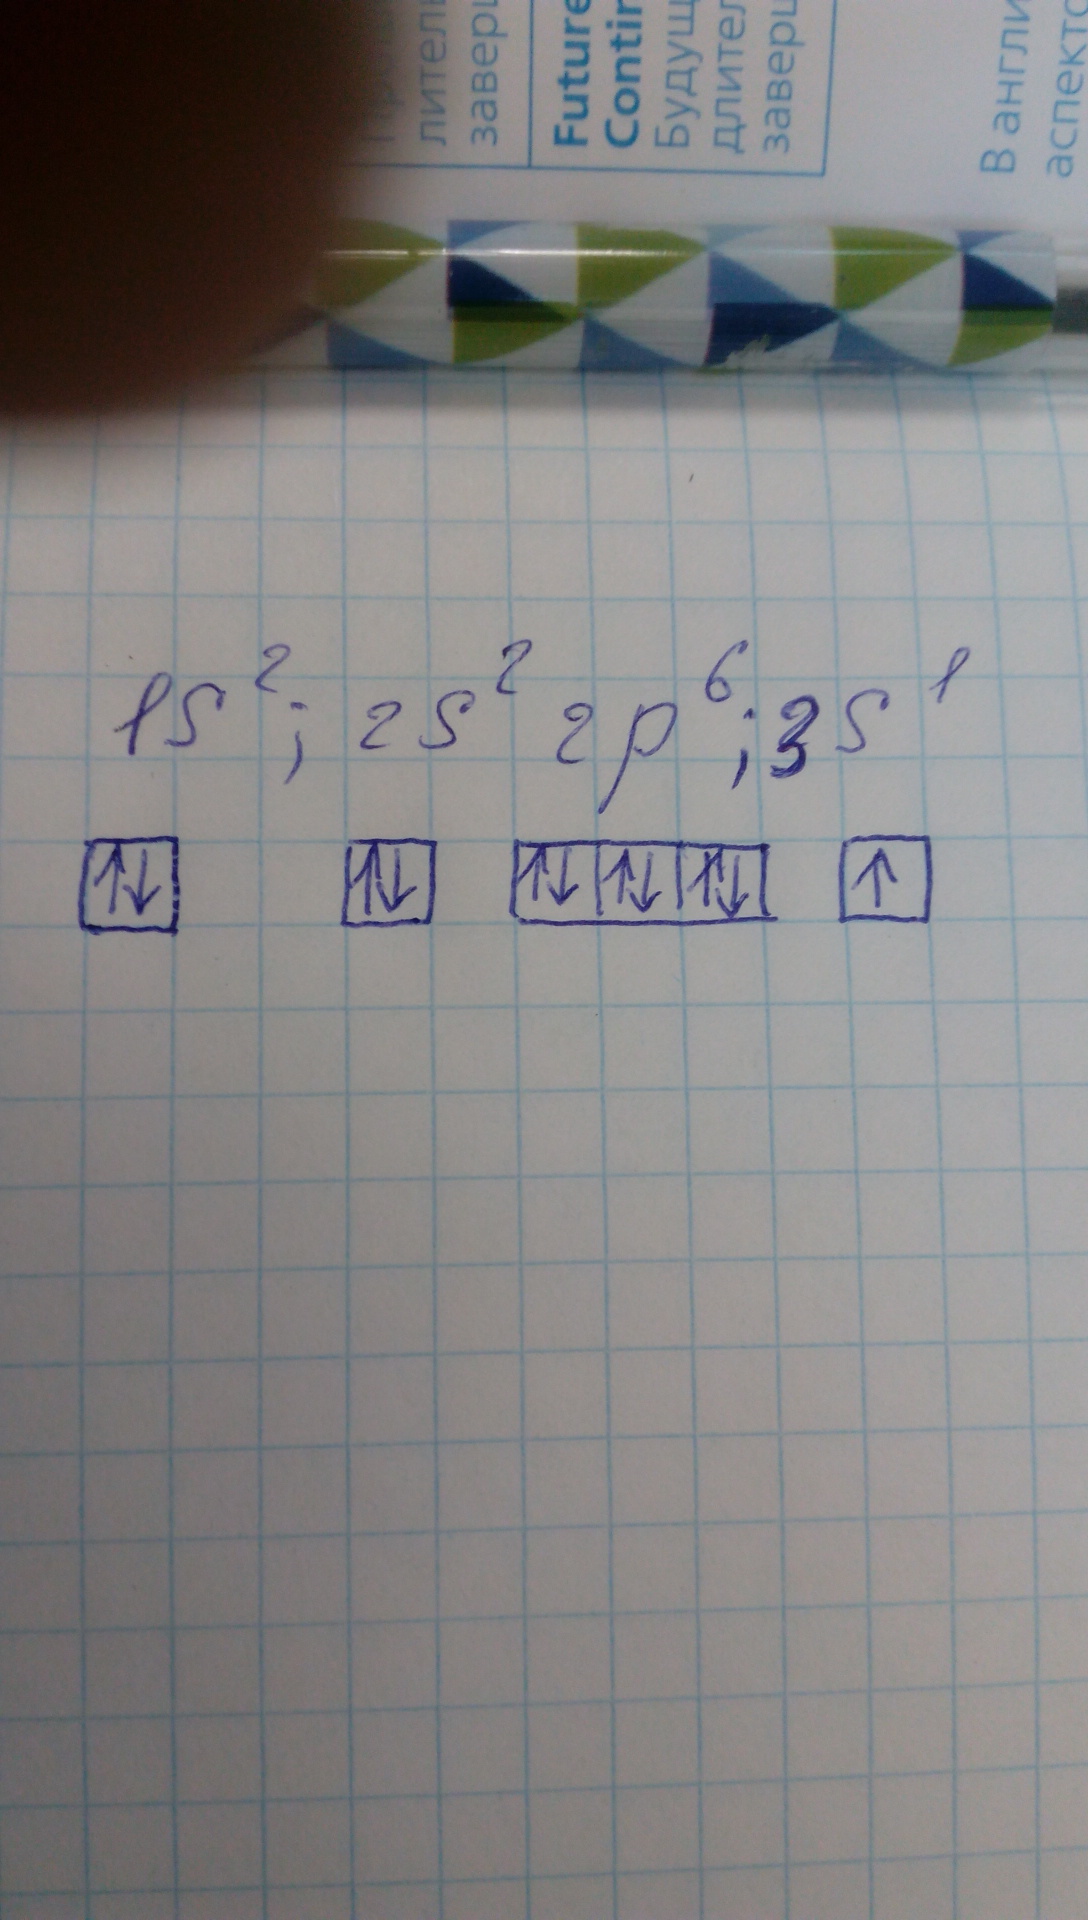 лител
заверш
Future
Contin
Будущ
длител
заверш
В англи
аспекто
1s²; 2s² 2p⁶; 3s¹
↑↓ ↑↓ ↑↓ ↑↓ ↑↓ ↑